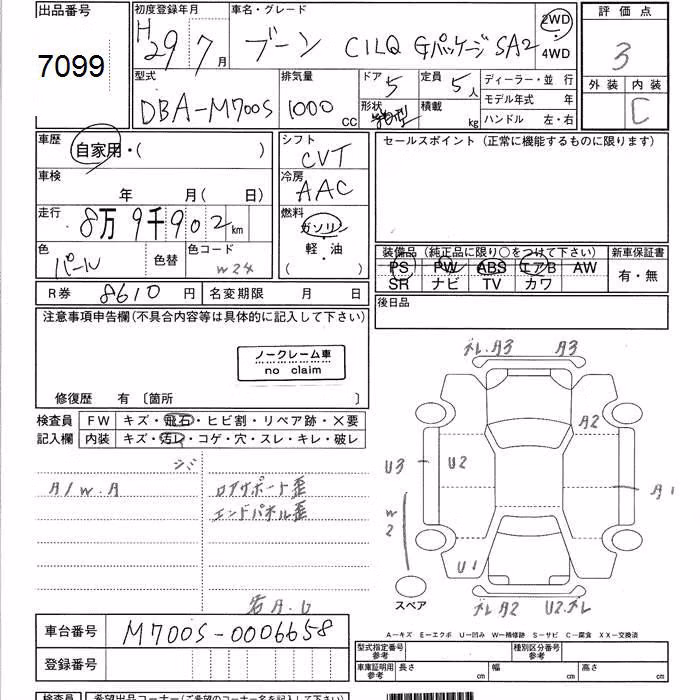 出品番号
7099
初度登録年月
H29 7月
車名・グレード
ブーン CILQ Gパッケージ SA2
2WD
・
4WD
評価点
3
外装 内装
C
型式
DBA-M700S
排気量
1000 cc
ドア 5
形状
定員 5人
積載 kg
ディーラー・並 行
モデル年式 年
ハンドル 左・右
車歴
自家用・( )
シフト
CVT
セールスポイント (正常に機能するものに限ります)
車検
年 月( 日)
冷房
AAC
走行
8万9千902km
燃料
ガソリン
・
軽・油
( )
色
パール
色替
色コード
W24
装備品 (純正品に限り○をつけて下さい)
PS PW ABS エアB AW
SR ナビ TV カワ
新車保証書
有・無
R券 8610円
名変期限 月 日
後日品
注意事項申告欄(不具合内容等は具体的に記入して下さい)
ノークレーム車
no claim
修復歴 有 〔箇所 〕
検査員
記入欄
FW キズ・飛石・ヒビ割・リペア跡・×要
内装 キズ・汚レ・コゲ・穴・スレ・キレ・破レ
シミ
A/W.A
ロアサポート歪
エンドパネル歪
若A.U
ズレ.A3 A3
A2
U3 U2
A1
W2
U1
スペア
ズレA2 U2.ズレ
A-キズ E-エクボ U-凹み W-補修跡 S-サビ C-腐食 XX-交換済
車台番号
M700S-0006658
登録番号
型式指定番号
参考
種別区分番号
参考
車庫証明用
参考
長さ cm 幅 cm 高さ cm
検査員
希望出品コーナー(ご希望のコーナー名を記入して下さい)